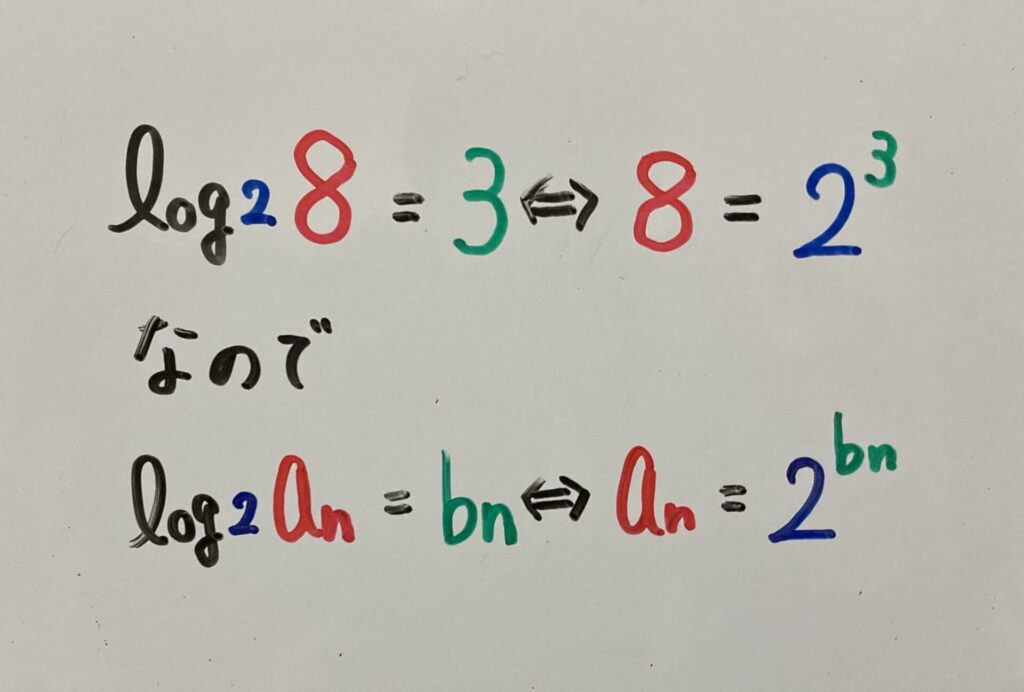 log₂8 = 3 ⇔ 8 = 2³
なので
log₂aₙ = bₙ ⇔ aₙ = 2^bₙ